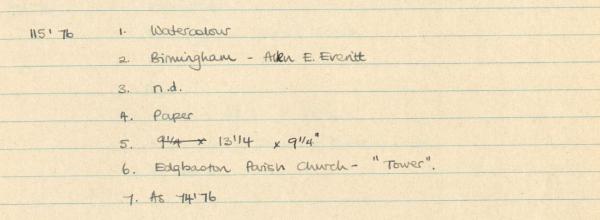 115'76 1. Watercolour
2. Birmingham - Allen E. Everitt
3. n.d.
4. Paper
5. 9 1/4 x 13 1/4 x 9 1/4"
6. Edgbaston Parish Church - "Tower".
7. As 74'76